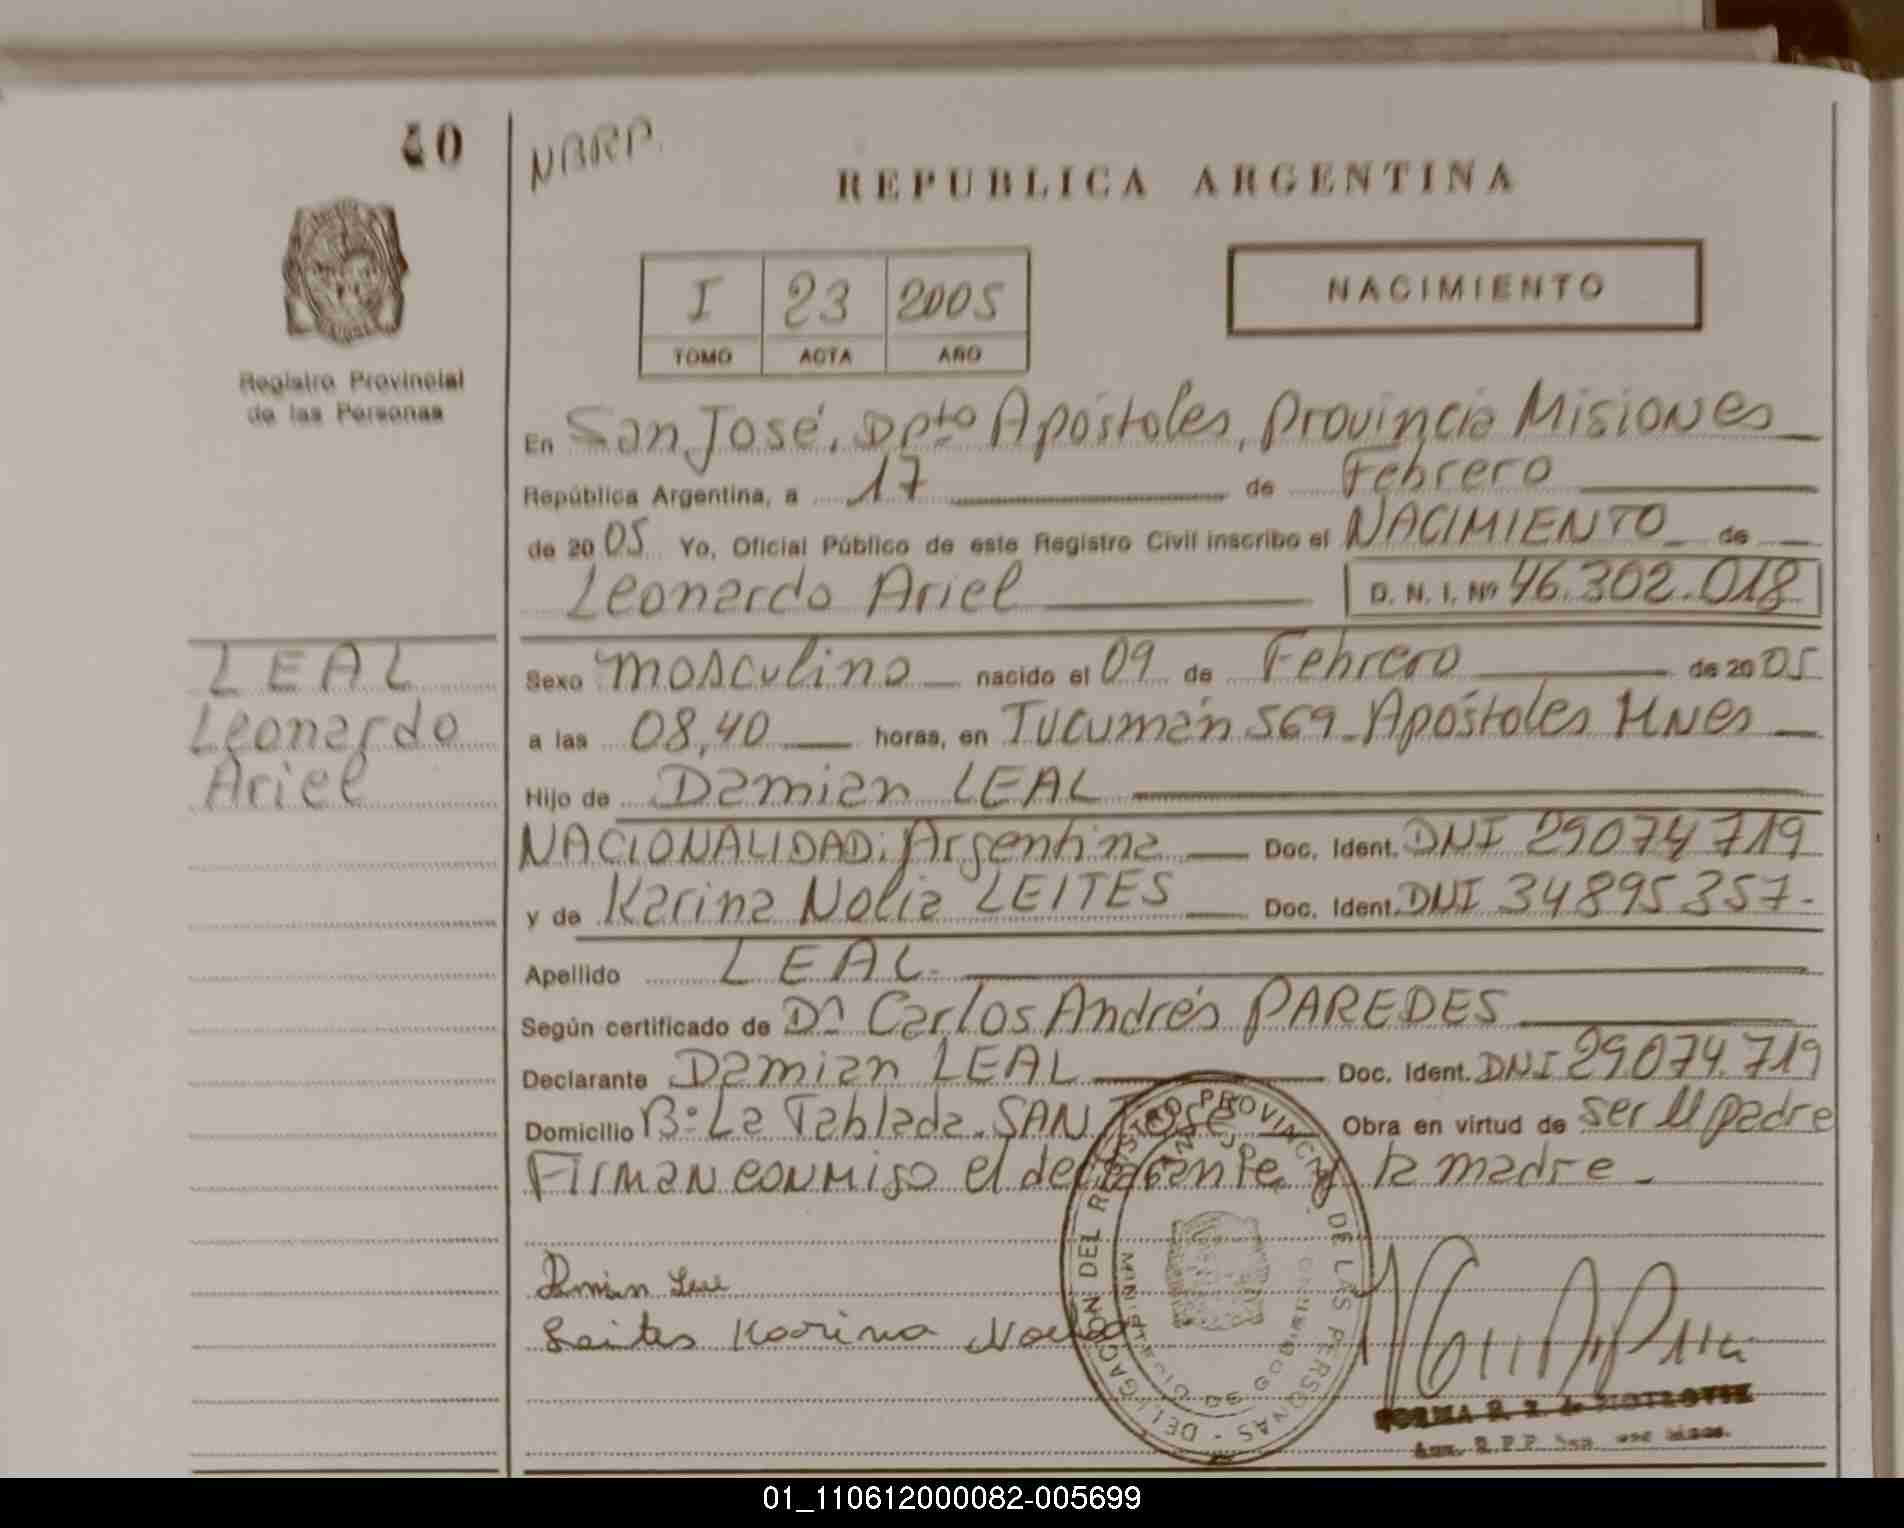 40
NBRP.
REPUBLICA ARGENTINA
I 23 2005
TOMO ACTA AÑO
NACIMIENTO
Registro Provincial
de las Personas
En San José, Dpto Apóstoles, Provincia Misiones
República Argentina, a 17 de Febrero
de 2005 Yo, Oficial Público de este Registro Civil inscribo el NACIMIENTO de
Leonardo Ariel D. N. I. Nº 46.302.018
LEAL
Leonardo
Ariel
Sexo masculino nacido el 09 de Febrero de 2005
a las 08,40 horas, en Tucumán 569 - Apóstoles Mnes
Hijo de Damian LEAL
NACIONALIDAD: Argentina Doc. Ident. DNI 29074719
y de Karina Nolia LEITES Doc. Ident. DNI 34895357-
Apellido LEAL
Según certificado de Dn Carlos Andrés PAREDES
Declarante Damian LEAL Doc. Ident. DNI 29074.719
Domicilio Bº La Tablada - SAN JOSE Obra en virtud de ser el padre
Firman conmigo el declarante y la madre -
Damian Leal
Leites Karina Nolia
DELEGACIÓN DEL REGISTRO PROVINCIAL DE LAS PERSONAS
SAN JOSE
NORMA
01_110612000082-005699